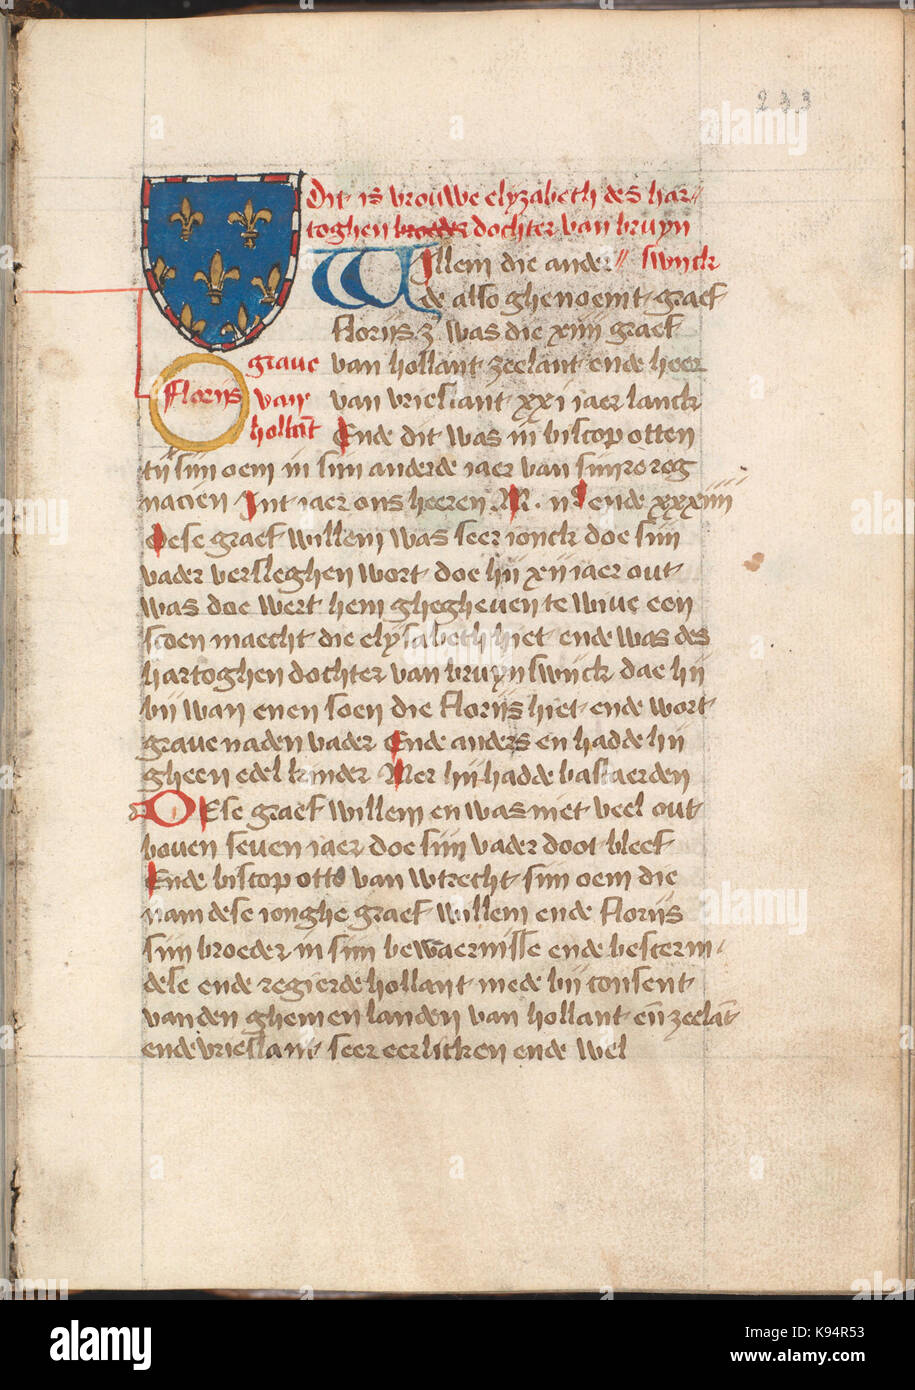 233
Dit is vrouwe elyzabeth des har
toghen broeder dochter van bruyn
swijck
Willem die ander
de also ghenoemt graef
florijs z was die xiiij graef
van hollant zeelant ende heer
van vrieslant xxi iaer lanck
graue
florijs van
hollāt
Ende dit was in biscop otten
tij sijn oem in sijn anderde iaer van sijnre reg
nacien Int iaer ons heeren M. ende xxxiiij
Dese graef willem was seer ionck doe sijn
vader versleghen wort doe hij xij iaer out
was doe wert hem ghegheuen te wiue een
scoen maecht die elysabeth hiet ende was des
hartoghen dochter van bruynswijck dae hij
bij wan enen soen die florijs hiet ende wort
graue na den vader Ende anders en hadde hij
gheen edel kinder Mer hij hadde bastaerden
Dese graef willem en was niet veel out
bouen seuen iaer doe sijn vader doot bleef
Ende biscop otto van wtrecht sijn oem die
nam dese ionghe graef willem ende florijs
sijn broeder in sijn bewaernisse ende bescerm
dese ende regierde hollant mede bij consent
van den ghemen landen van hollant eñ zeelāt
ende vrieslant seer eerlicken ende wel
alamy
Image ID: K94R53
www.alamy.com